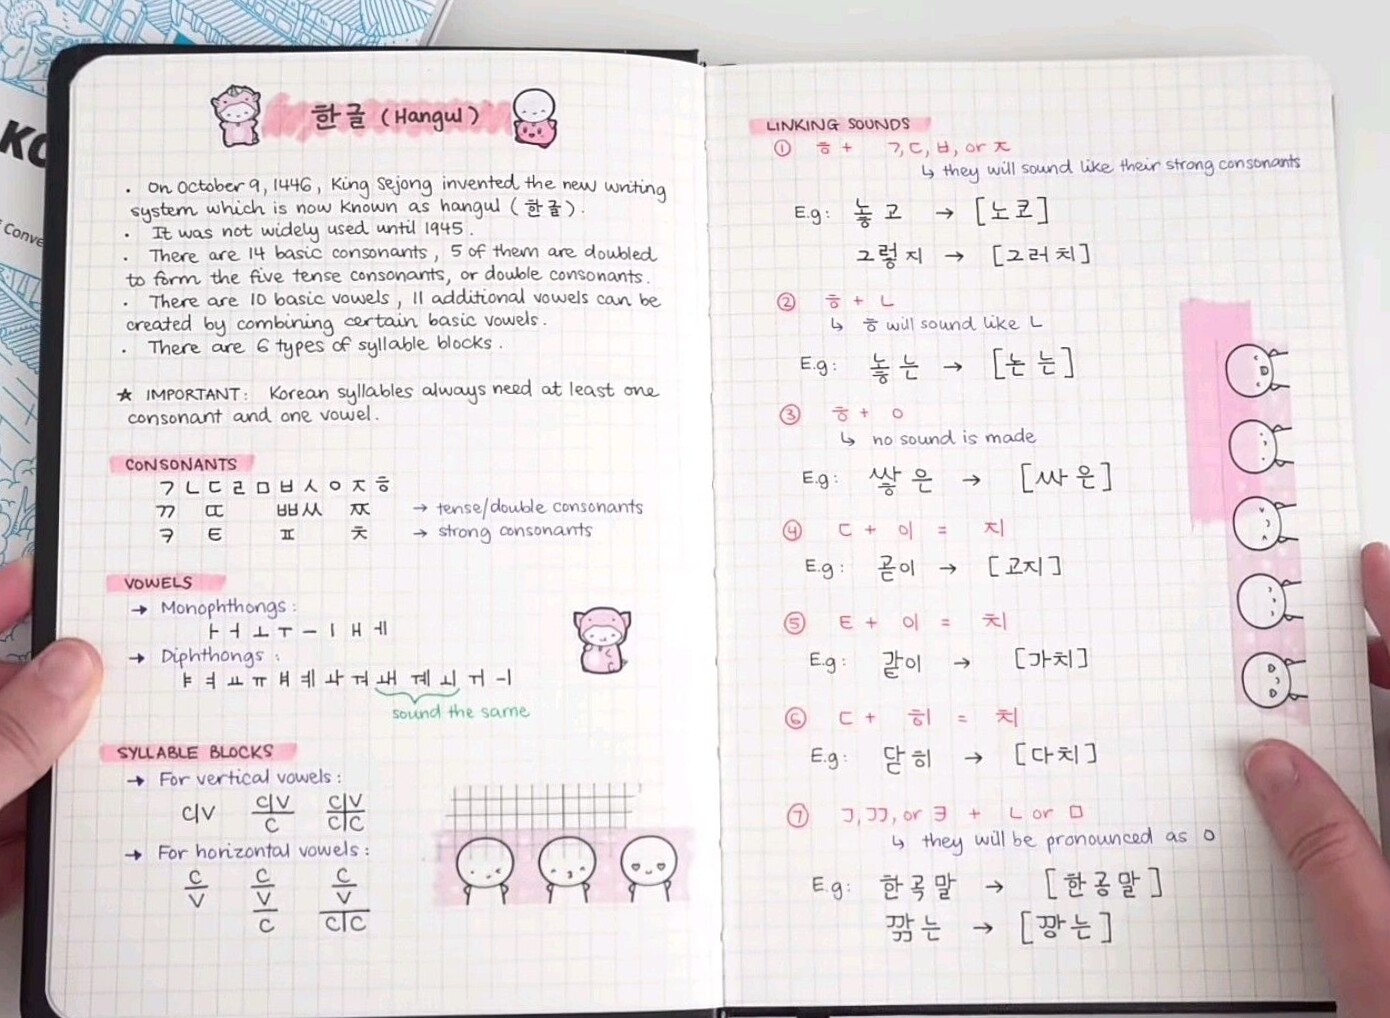 KO
Conve
한글 (Hangul)
• On October 9, 1446, King Sejong invented the new writing
system which is now known as hangul (한글).
• It was not widely used until 1945.
• There are 14 basic consonants, 5 of them are doubled
to form the five tense consonants, or double consonants.
• There are 10 basic vowels, 11 additional vowels can be
created by combining certain basic vowels.
• There are 6 types of syllable blocks.
★ IMPORTANT: Korean syllables always need at least one
consonant and one vowel.
CONSONANTS
ㄱ ㄴ ㄷ ㄹ ㅁ ㅂ ㅅ ㅇ ㅈ ㅎ
ㄲ ㄸ ㅃ ㅆ ㅉ → tense/double consonants
ㅋ ㅌ ㅍ ㅊ → strong consonants
VOWELS
→ Monophthongs:
ㅏ ㅓ ㅗ ㅜ ㅡ ㅣ ㅐ ㅔ
→ Diphthongs:
ㅑ ㅕ ㅛ ㅠ ㅒ ㅖ ㅘ ㅝ ㅙ ㅞ ㅚ ㅟ ㅢ
sound the same
SYLLABLE BLOCKS
→ For vertical vowels:
C|V C|V C|V
C C|C
→ For horizontal vowels:
C C C
V V V
C C|C
LINKING SOUNDS
① ㅎ + ㄱ, ㄷ, ㅂ, or ㅈ
↳ they will sound like their strong consonants
E.g:놓고 → [노코]
그렇지 → [그러치]
② ㅎ + ㄴ
↳ ㅎ will sound like ㄴ
E.g: 놓는 → [논는]
③ ㅎ + ㅇ
↳ no sound is made
E.g: 쌓은 → [싸은]
④ ㄷ + 이 = 지
E.g: 곧이 → [고지]
⑤ ㅌ + 이 = 치
E.g: 같이 → [가치]
⑥ ㄷ + 히 = 치
E.g: 닫히 → [다치]
⑦ ㄱ, ㄲ, or ㅋ + ㄴ or ㅁ
↳ they will be pronounced as ㅇ
E.g: 한국말 → [한궁말]
깎는 → [깡는]